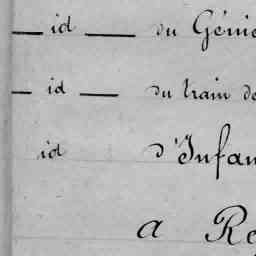 — id — du Génie
— id — du train de
id d'Infan
a Re